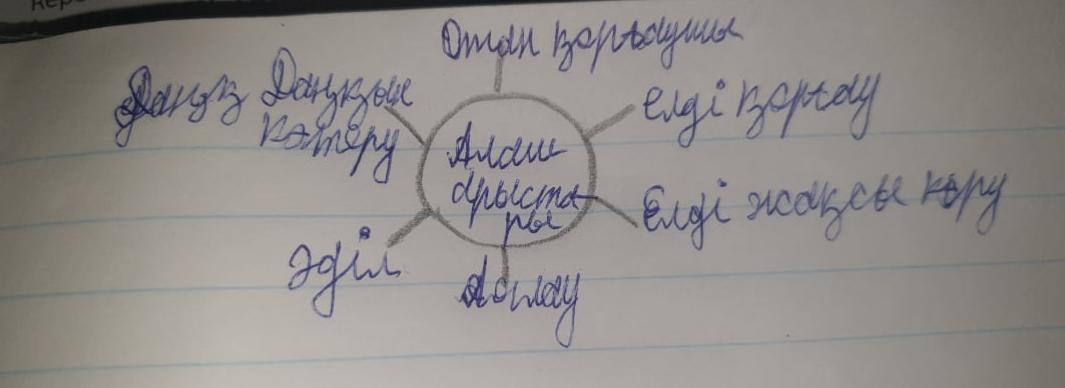 Отан қорғаушы
Даңқын
көтеру
Елді қорғау
Алаш
арыста
ры
Елді жақсы көру
Әділ